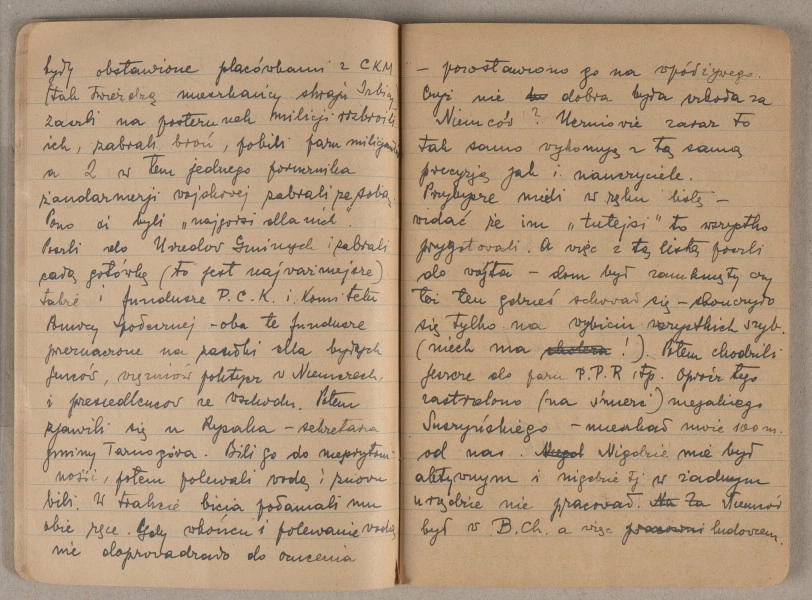 były obstawione placówkami z CKM
(tak twierdzą mieszkańcy skraju Izbicy
zaszli na posterunek milicji rozbroili
ich, zabrali broń, pobili paru milicjantów
a 2 w tem jednego porucznika
żandarmerji wojskowej zabrali ze sobą.
Pono ci byli „najgorsi dla nich".
Poszli do Urzędów Gminnych i zabrali
całą gotówkę (to jest najważniejsze)
także i fundusze P.C.K. i Komitetu
Pomocy Społecznej - oba te fundusze
przeznaczone na zasiłki dla byłych
jeńców, więźniów polityz w Niemczech,
i przesiedleńców ze wschodu. Potem
zjawili się u Rysaka - sekretarza
gminy Tarnogóra. Bili go do nieprzytom-
ności, potem polewali wodą i znowu
bili. W trakcie bicia połamali mu
obie ręce. Gdy wkońcu i polewanie wodą
nie doprowadzało do ocucenia
- pozostawiono go na wpółżywego.
Czyż nie dobra była szkoła za
Niemców? Uczniowie zaraz to
tak samo wykonują z tą samą
precyzją jak i nauczyciele.
Przybysze mieli w ręku listę -
widać że im „tutejsi" to wszystko
przygotowali. A więc z tą listą poszli
do wójta - dom był zamknięty czy
też ten gdzieś schował się - skończyło
się tylko na wybiciu wszystkich szyb.
(niech ma cholera!). Potem chodzili
jeszcze do paru P.P.R itp. Oprócz tego
zastrzelono (na śmierć) niejakiego
Suszyńskiego - mieszkał może 100 m.
od nas. Nigdzie nie był
aktywnym i nigdzie tj w żadnym
urzędzie nie pracował. Na Za Niemców
był w B.Ch. a więc ludowcem.